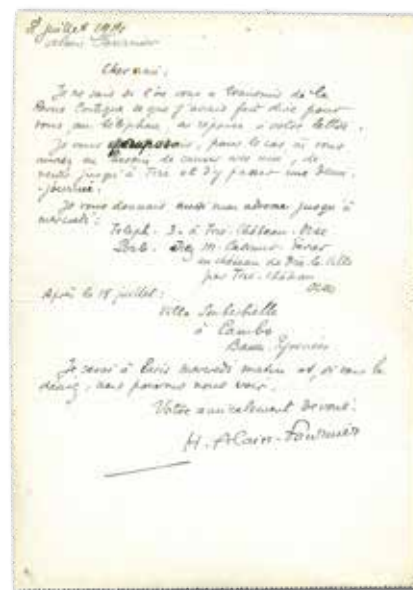 juillet 191
Alain Fournier
Cher ami,
Je ne sais si l'on vous a transmis de la
Revue Critique ce que j'avais fait dire pour
vous au téléphone, en réponse à votre lettre.
Je vous proposais, pour le cas où vous
auriez eu besoin de causer avec moi, de
venir jusqu'à Trie et d'y passer une demi-
journée.
Je vous donnais aussi mon adresse jusqu'à
mercredi :
Téleph. 3 - à Trie-Château - Oise
chez M. Casimir-Périer
au château de la Ville
par Trie-Château
Oise
Après le 18 juillet :
Villa
à Cambo
Basses Pyrénées
Je serai à Paris mercredi matin et, si vous le
désirez, nous pourrons nous voir.
Votre amicalement dévoué.
H. Alain-Fournier